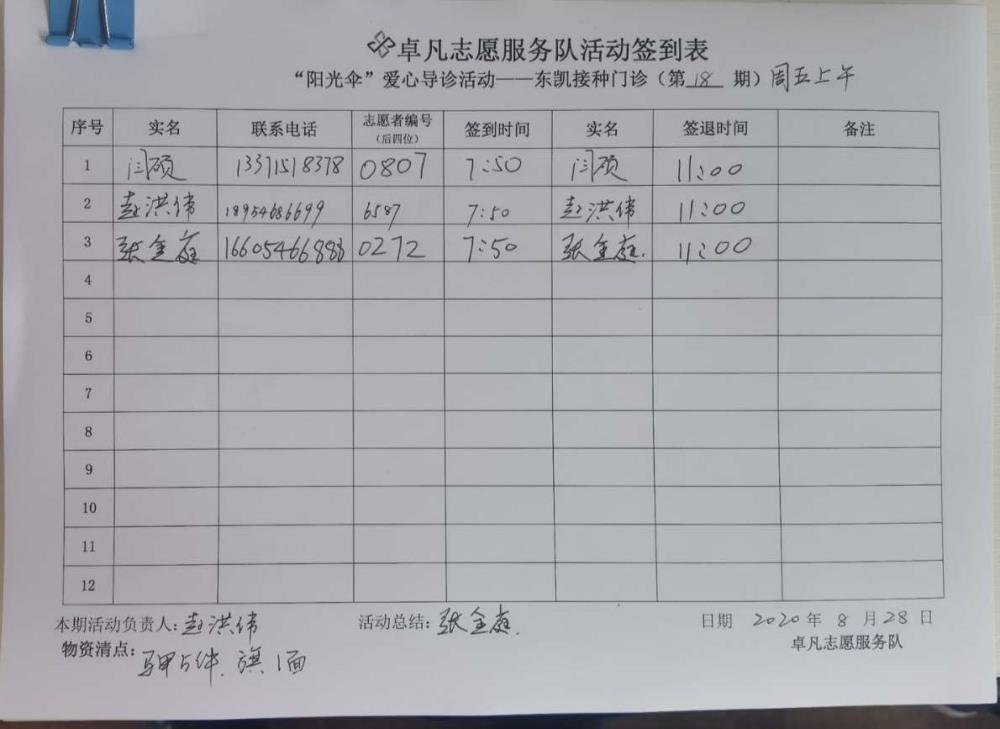 卓凡志愿服务队活动签到表
“阳光伞”爱心导诊活动——东凯接种门诊（第 18 期）周五上午
序号 实名 联系电话 志愿者编号（后四位） 签到时间 实名 签退时间 备注
1 闫硕 13371518378 0807 7:50 闫硕 11:00
2 赵洪伟 18954686699 6587 7:50 赵洪伟 11:00
3 张金庭 16605466888 0272 7:50 张金庭. 11:00
4
5
6
7
8
9
10
11
12
本期活动负责人：赵洪伟 活动总结：张金庭. 日期 2020 年 8 月 28 日
物资清点：马甲5件、旗1面 卓凡志愿服务队